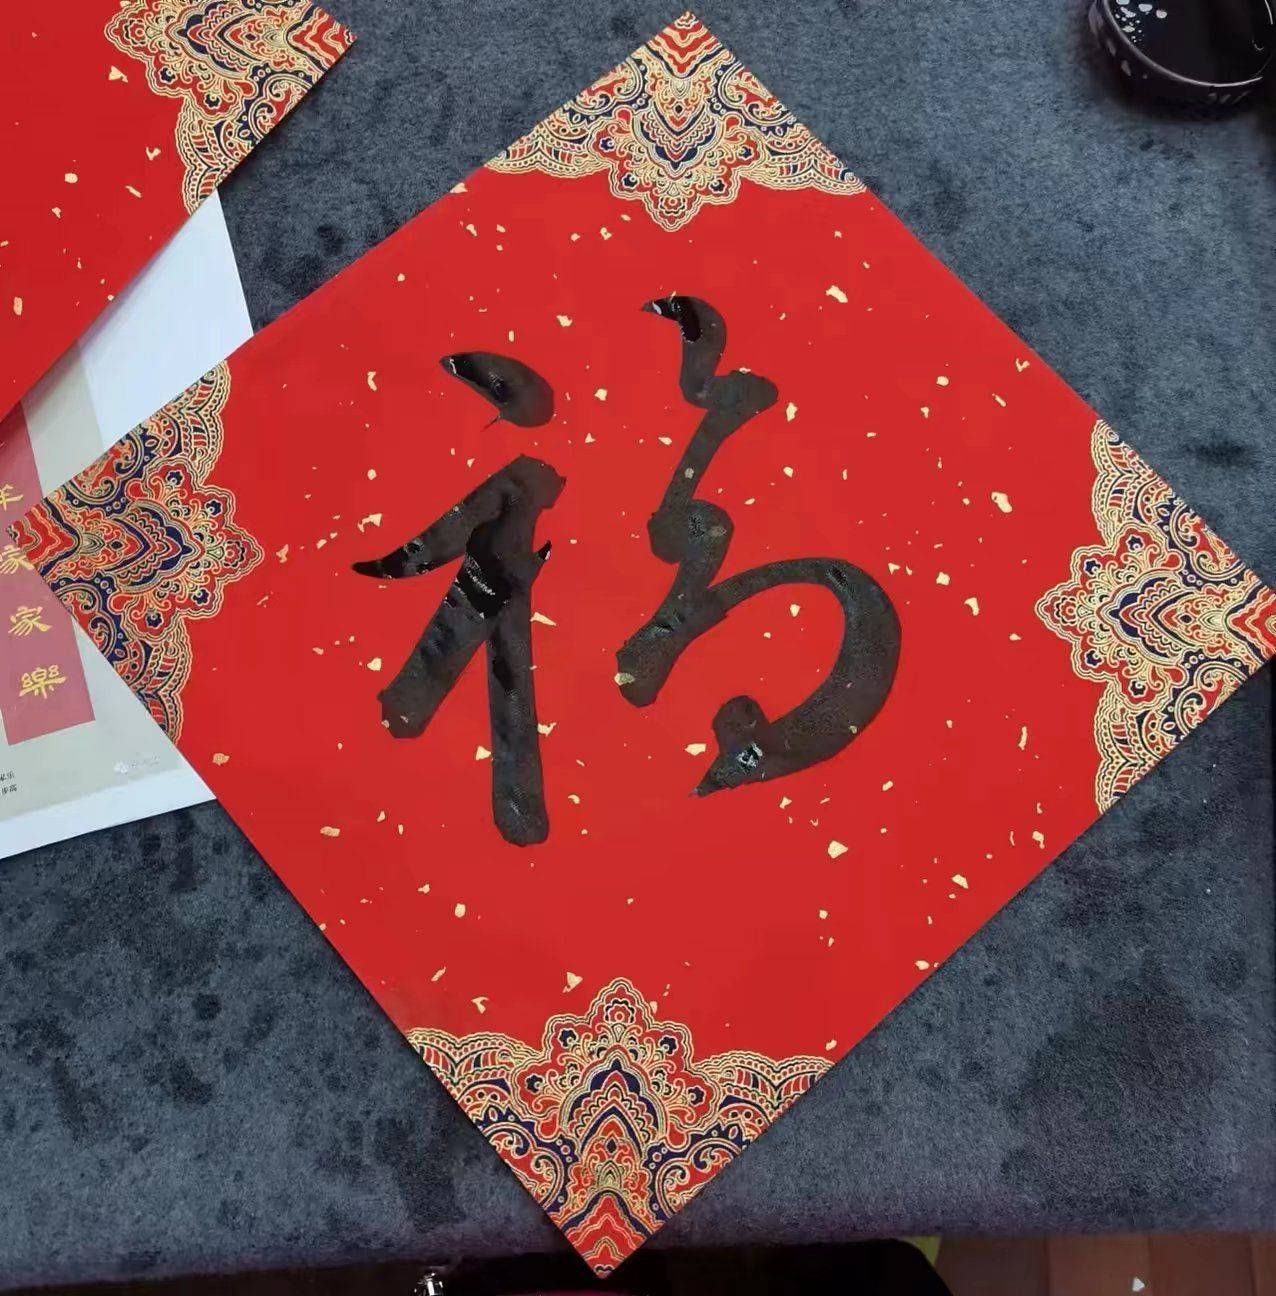 福
家
家
樂